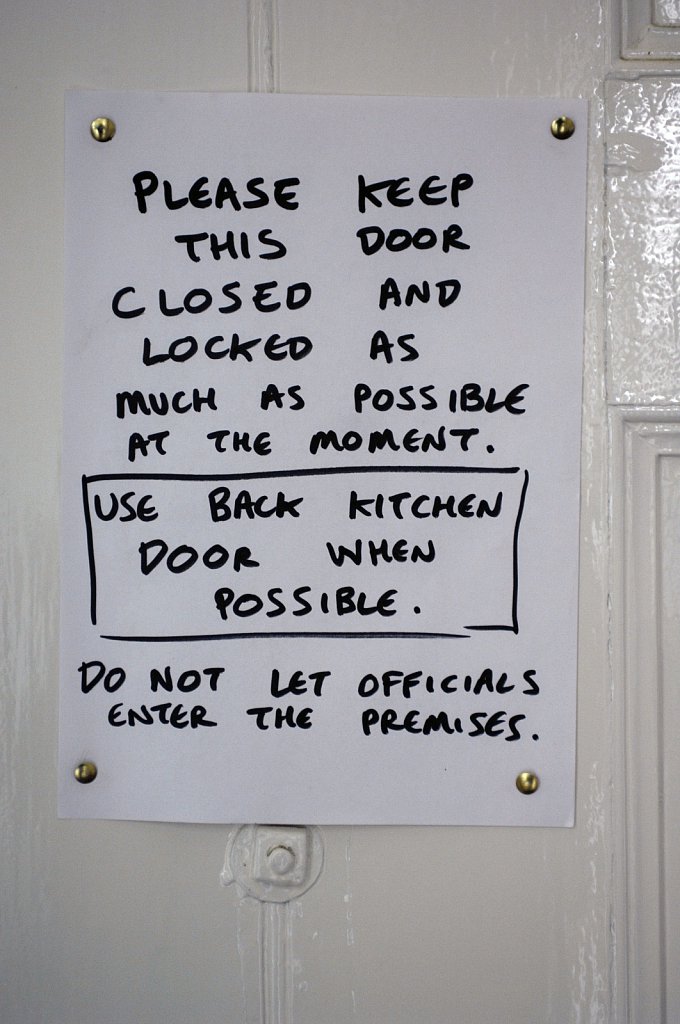 PLEASE KEEP
THIS DOOR
CLOSED AND
LOCKED AS
MUCH AS POSSIBLE
AT THE MOMENT.
USE BACK KITCHEN
DOOR WHEN
POSSIBLE.
DO NOT LET OFFICIALS
ENTER THE PREMISES.